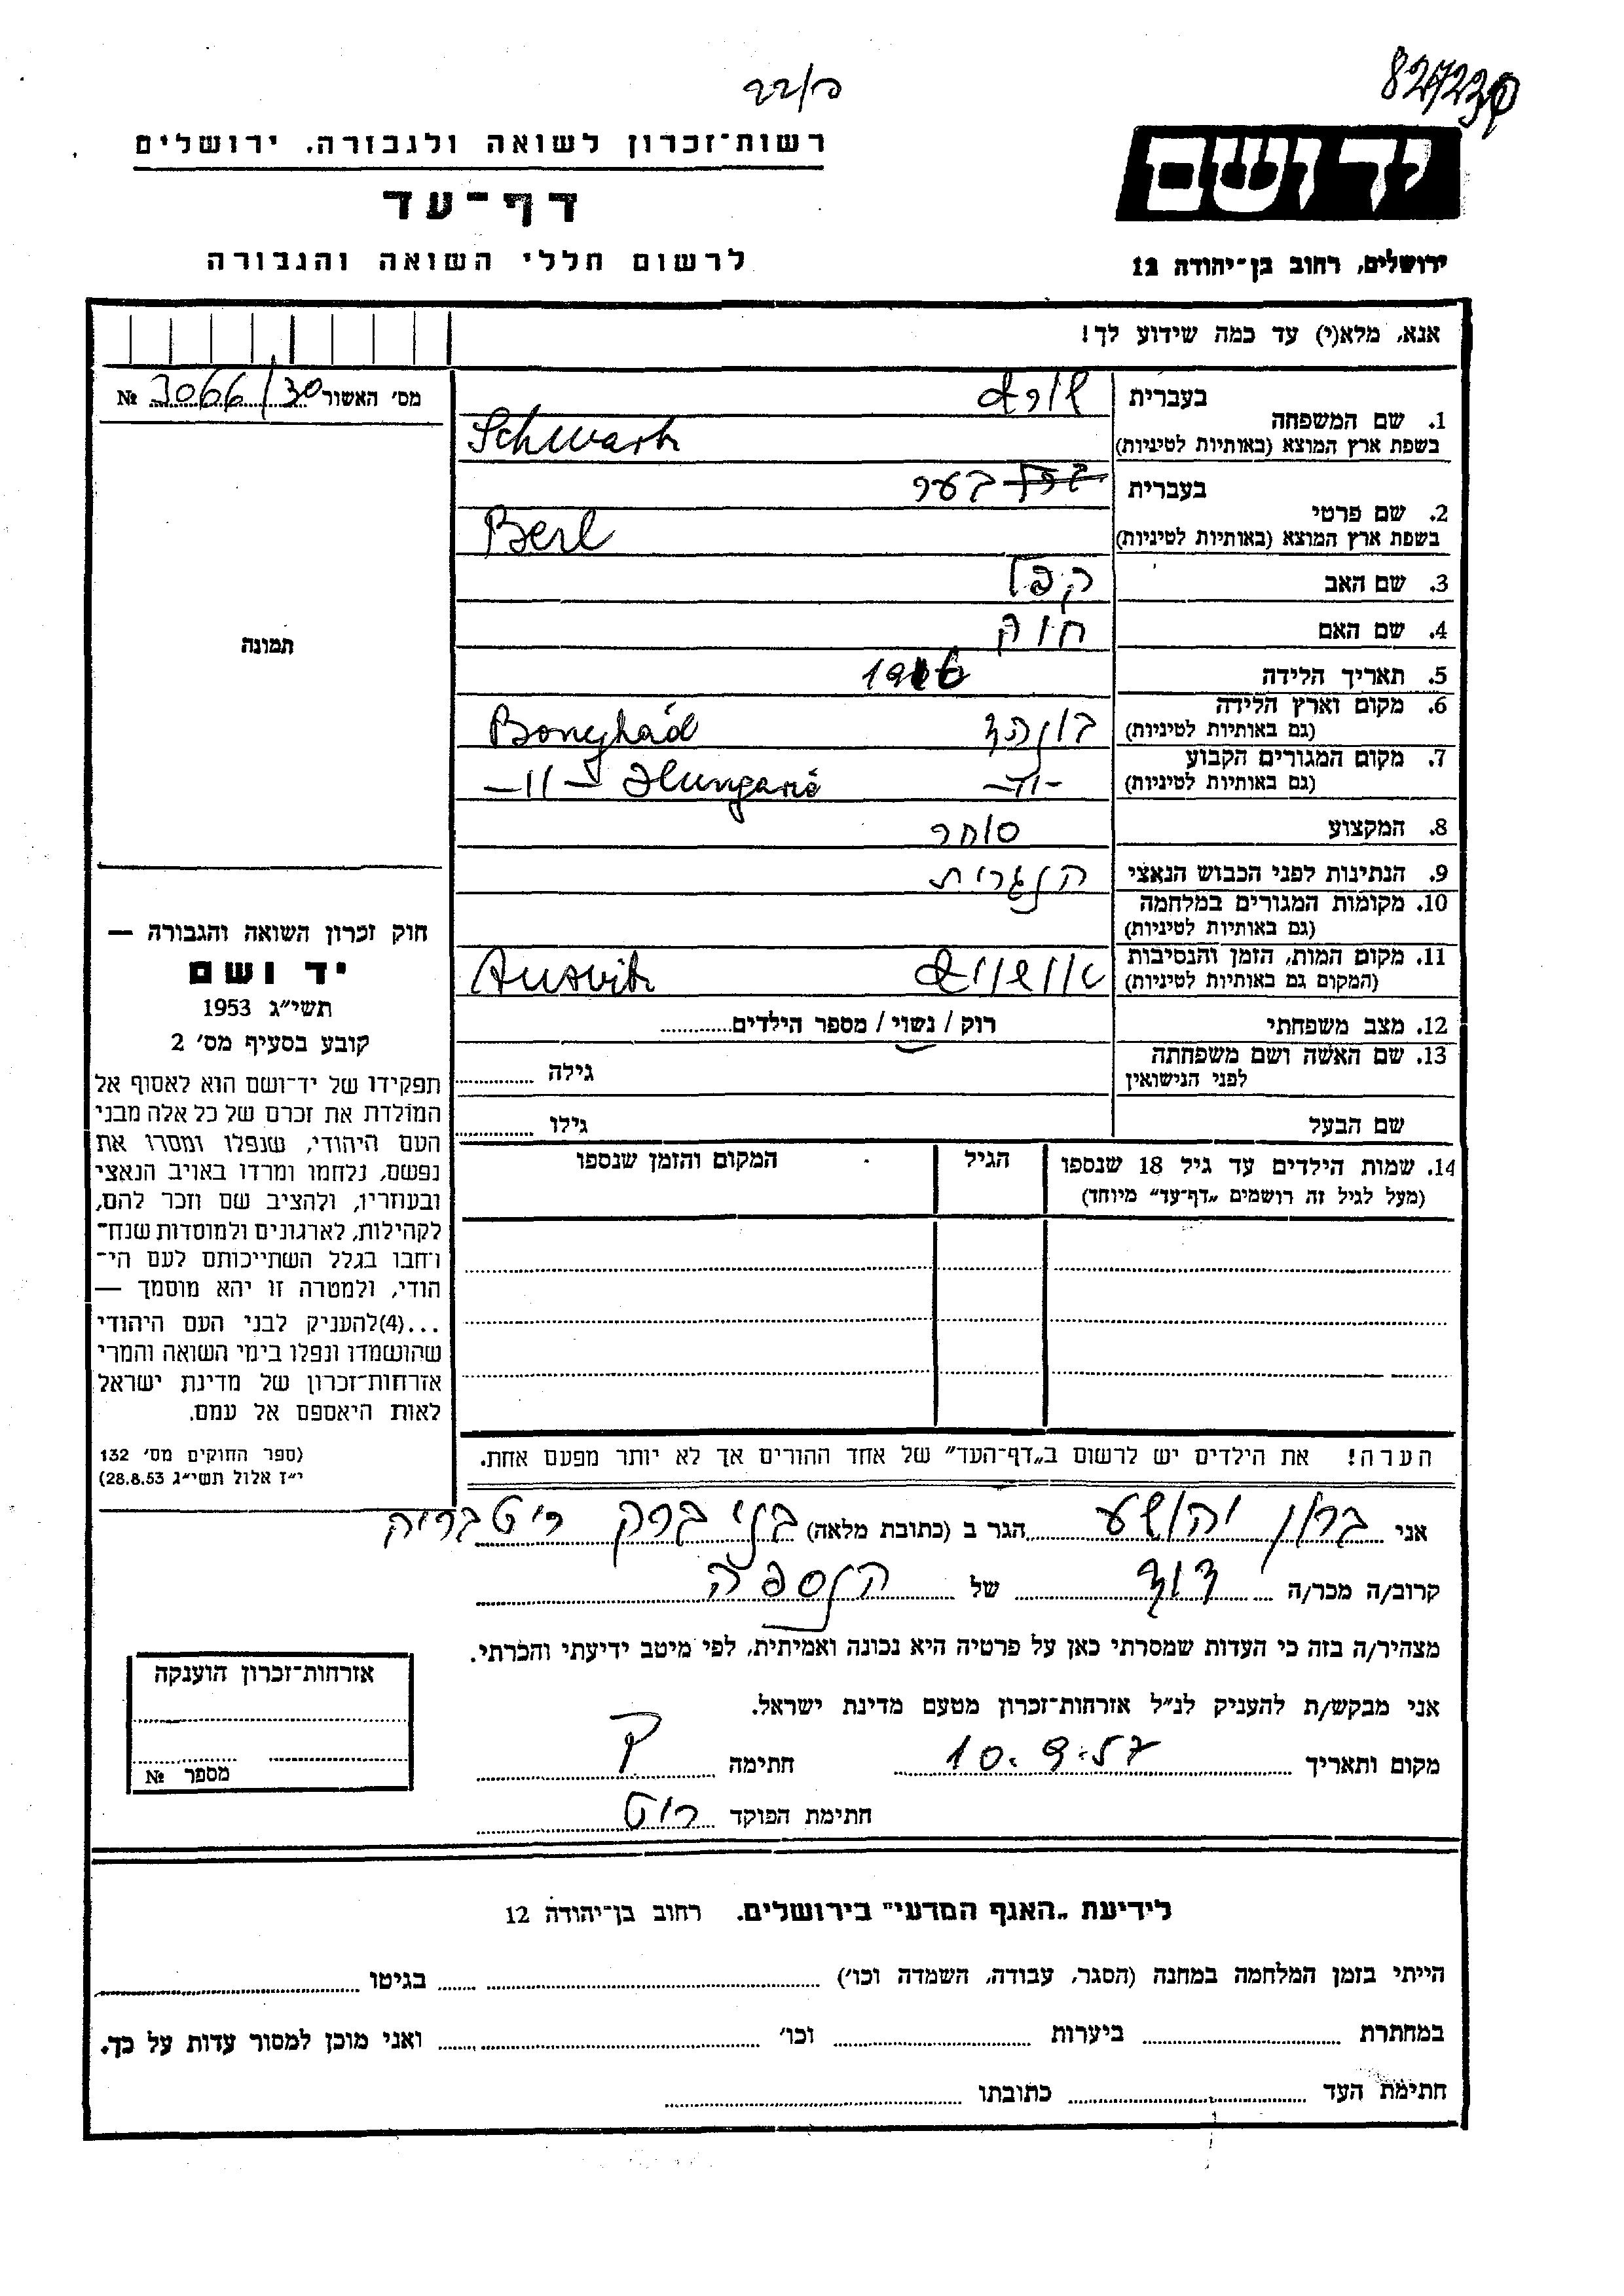 827239
22/פ
רשות־זכרון לשואה ולגבורה. ירושלים
דף־עד
לרשום חללי השואה והגבורה
יד ושם
ירושלים, רחוב בן־יהודה 12
אנא, מלא(י) עד כמה שידוע לך!
מס׳ האשור 3066/30 №
תמונה
1. שם המשפחה
בעברית שורץ
בשפת ארץ המוצא (באותיות לטיניות) Schwartz
2. שם פרטי
בעברית בער
בשפת ארץ המוצא (באותיות לטיניות) Berl
3. שם האב
4. שם האם חוה
5. תאריך הלידה
6. מקום וארץ הלידה בונהד Bonyhád
(גם באותיות לטיניות)
7. מקום המגורים הקבוע -"- -"- Hungaria
(גם באותיות לטיניות)
8. המקצוע סוחר
9. הנתינות לפני הכבוש הנאצי הנגרית
10. מקומות המגורים במלחמה
(גם באותיות לטיניות)
11. מקום המות, הזמן והנסיבות אושויץ Ausvitz
(המקום גם באותיות לטיניות)
12. מצב משפחתי רוק / נשוי / מספר הילדים
13. שם האשה ושם משפחתה
לפני הנישואין גילה
שם הבעל גילו
14. שמות הילדים עד גיל 18 שנספו הגיל המקום והזמן שנספו
(מעל לגיל זה רושמים „דף־עד״ מיוחד)
הערה! את הילדים יש לרשום ב„דף־העד״ של אחד ההורים אך לא יותר מפעם אחת.
חוק זכרון השואה והגבורה —
יד ושם
תשי״ג 1953
קובע בסעיף מס׳ 2
תפקידו של יד־ושם הוא לאסוף אל
המולדת את זכרם של כל אלה מבני
העם היהודי, שנפלו ומסרו את
נפשם, נלחמו ומרדו באויב הנאצי
ובעוזריו, ולהציב שם וזכר להם,
לקהילות, לארגונים ולמוסדות שנח־
רבו בגלל השתייכותם לעם הי־
הודי, ולמטרה זו יהא מוסמך —
...(4)להעניק לבני העם היהודי
שהושמדו ונפלו בימי השואה והמרי
אזרחות־זכרון של מדינת ישראל
לאות היאספם אל עמם.
(ספר החוקים מס׳ 132
י״ז אלול תשי״ג 28.8.53)
אני ברון יהושע הגר ב (כתובת מלאה) בני ברק
קרוב/ה מכר/ה דוד של הנספה
מצהיר/ה בזה כי העדות שמסרתי כאן על פרטיה היא נכונה ואמיתית, לפי מיטב ידיעתי והכרתי.
אני מבקש/ת להעניק לנ״ל אזרחות־זכרון מטעם מדינת ישראל.
מקום ותאריך 10.9.57 חתימה
חתימת הפוקד
אזרחות־זכרון הוענקה
מספר №
לידיעת „האגף המדעי״ בירושלים. רחוב בן־יהודה 12
הייתי בזמן המלחמה במחנה (הסגר, עבודה, השמדה וכו׳) בגיטו
במחתרת ביערות וכו׳ ואני מוכן למסור עדות על כך.
חתימת העד כתובתו